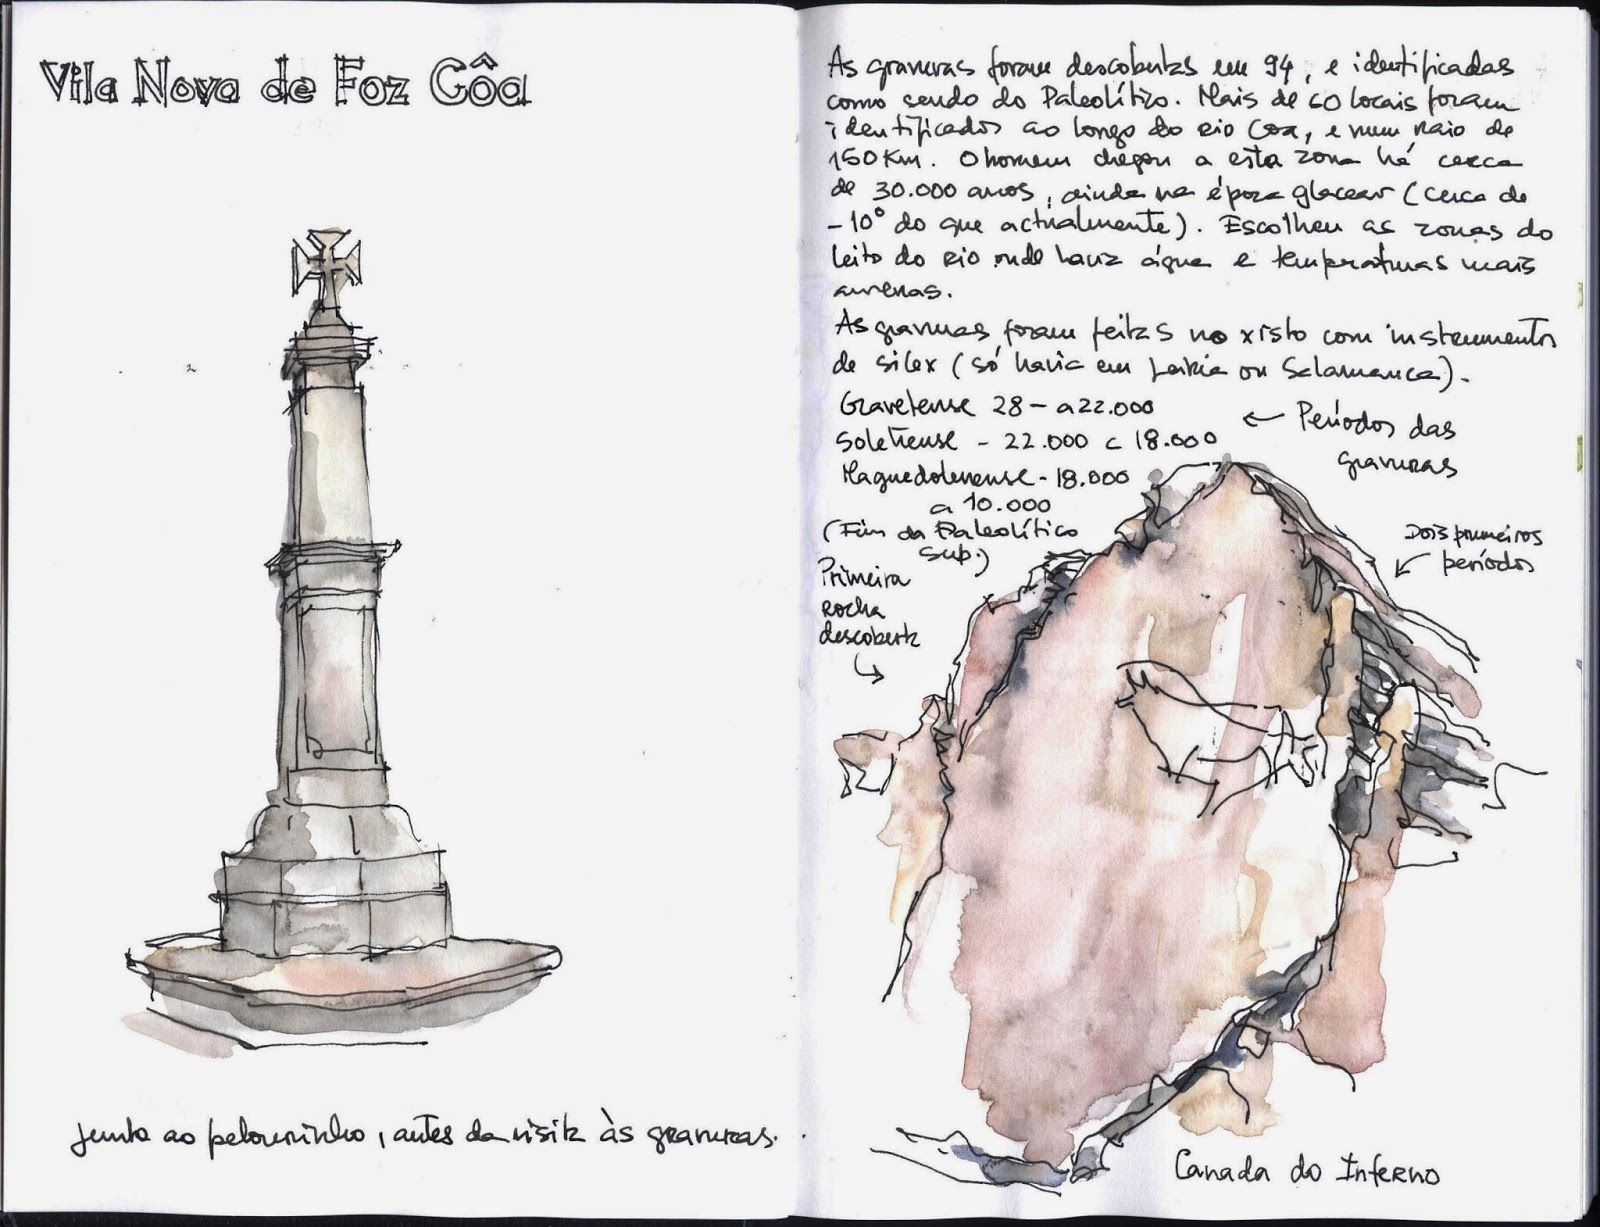 Vila Nova de Foz Côa
Junto ao pelourinho, antes da visita às gravuras.
As gravuras foram descobertas em 94, e identificadas
como sendo do Paleolítico. Mais de 60 locais foram
identificados ao longo do rio Coa, e num raio de
150Km. O homem chegou a esta zona há cerca
de 30.000 anos, ainda na época glacear (cerca de
-10º do que actualmente). Escolheu as zonas do
leito do rio onde havia água e temperaturas mais
amenas.
As gravuras foram feitas no xisto com instrumentos
de silex (só havia em Leiria ou Salamanca).
Gravetense 28 - a 22.000
Soletrense - 22.000 a 18.000
← Períodos das
gravuras
Maguedolenense - 18.000
a 10.000
(Fim da Paleolítico
Sup.)
Dois primeiros
períodos
Primeira
rocha
descoberta
Canada do Inferno